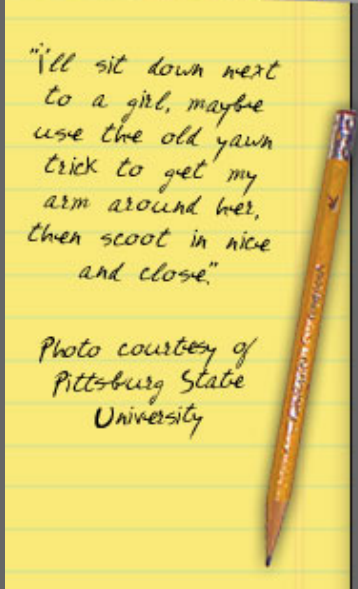 "i'll sit down next
to a girl, maybe
use the old yawn
trick to get my
arm around her,
then scoot in nice
and close."
Photo courtesy of
Pittsburg State
University